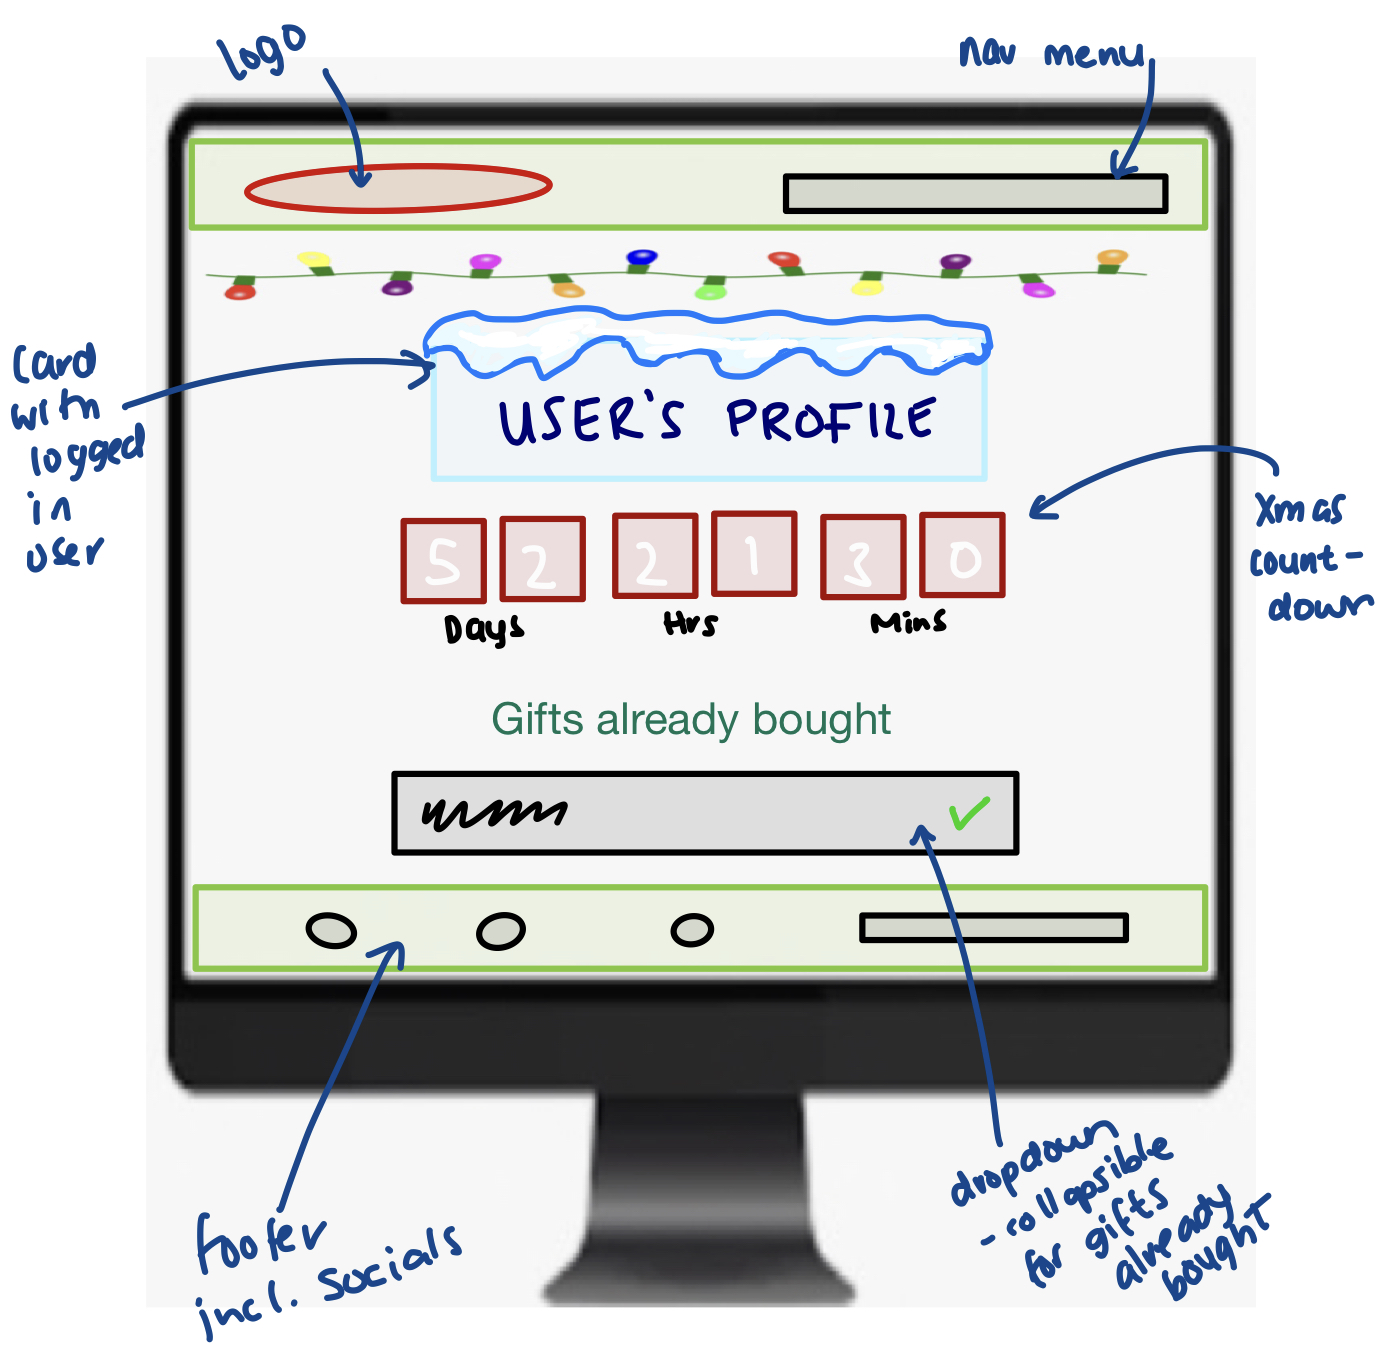 logo
nav menu
card
with
logged
in
user
USER'S PROFILE
5 2 2 1 3 0
Days Hrs Mins
Xmas
count-
down
Gifts already bought
footer
incl. socials
dropdown
- collapsible
for gifts
already
bought